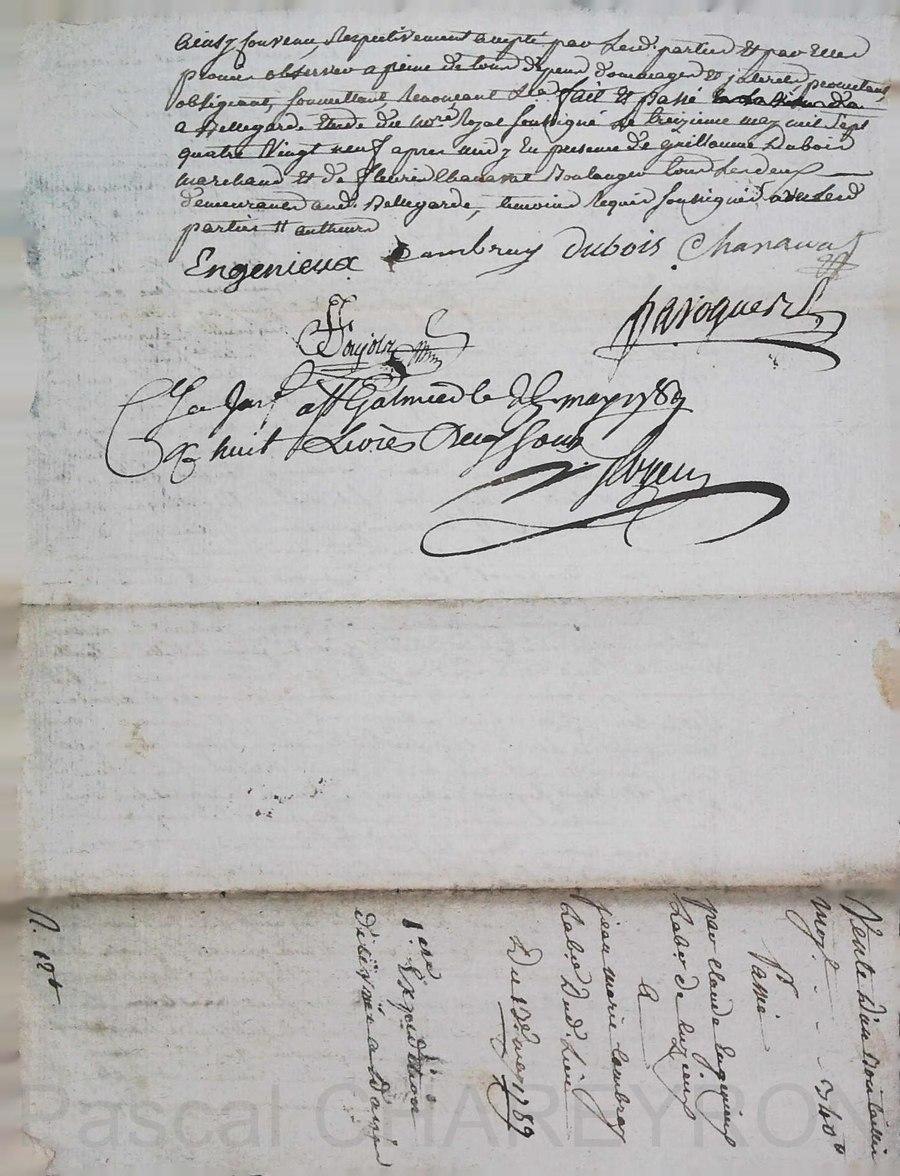 Ainsy convenu, Respectivement accepté par Lesd. parties Et par Elles
promis observer a peine de tous depens dommages et interets promettant,
obligeant, soumettant, Renonçant &a fait et passé
a Bellegarde Etude du no.re Royal soussigné Le treizieme may mil sept
quatre Vingt neuf apres midy En presence de Guillaume Dubois
marchand Et de fleurie Chanavat Boulanger tous Les deux
demeurants aud. Bellegarde, temoins Requis soussignés avec Lesd
parties
Engenieux Cambray Dubois Chanavat
Pujols
a St Galmier le may 1789
huit Livres Sous
Vente d'un
moy.t - - - 340
Passé
par claude Engenieux
Labr de
A
jean marie Cambray
Labr dud. Lieu
Du 13 may 1789
1.ere Expedition
délivrée a
N. 12
Pascal CHAREYRON